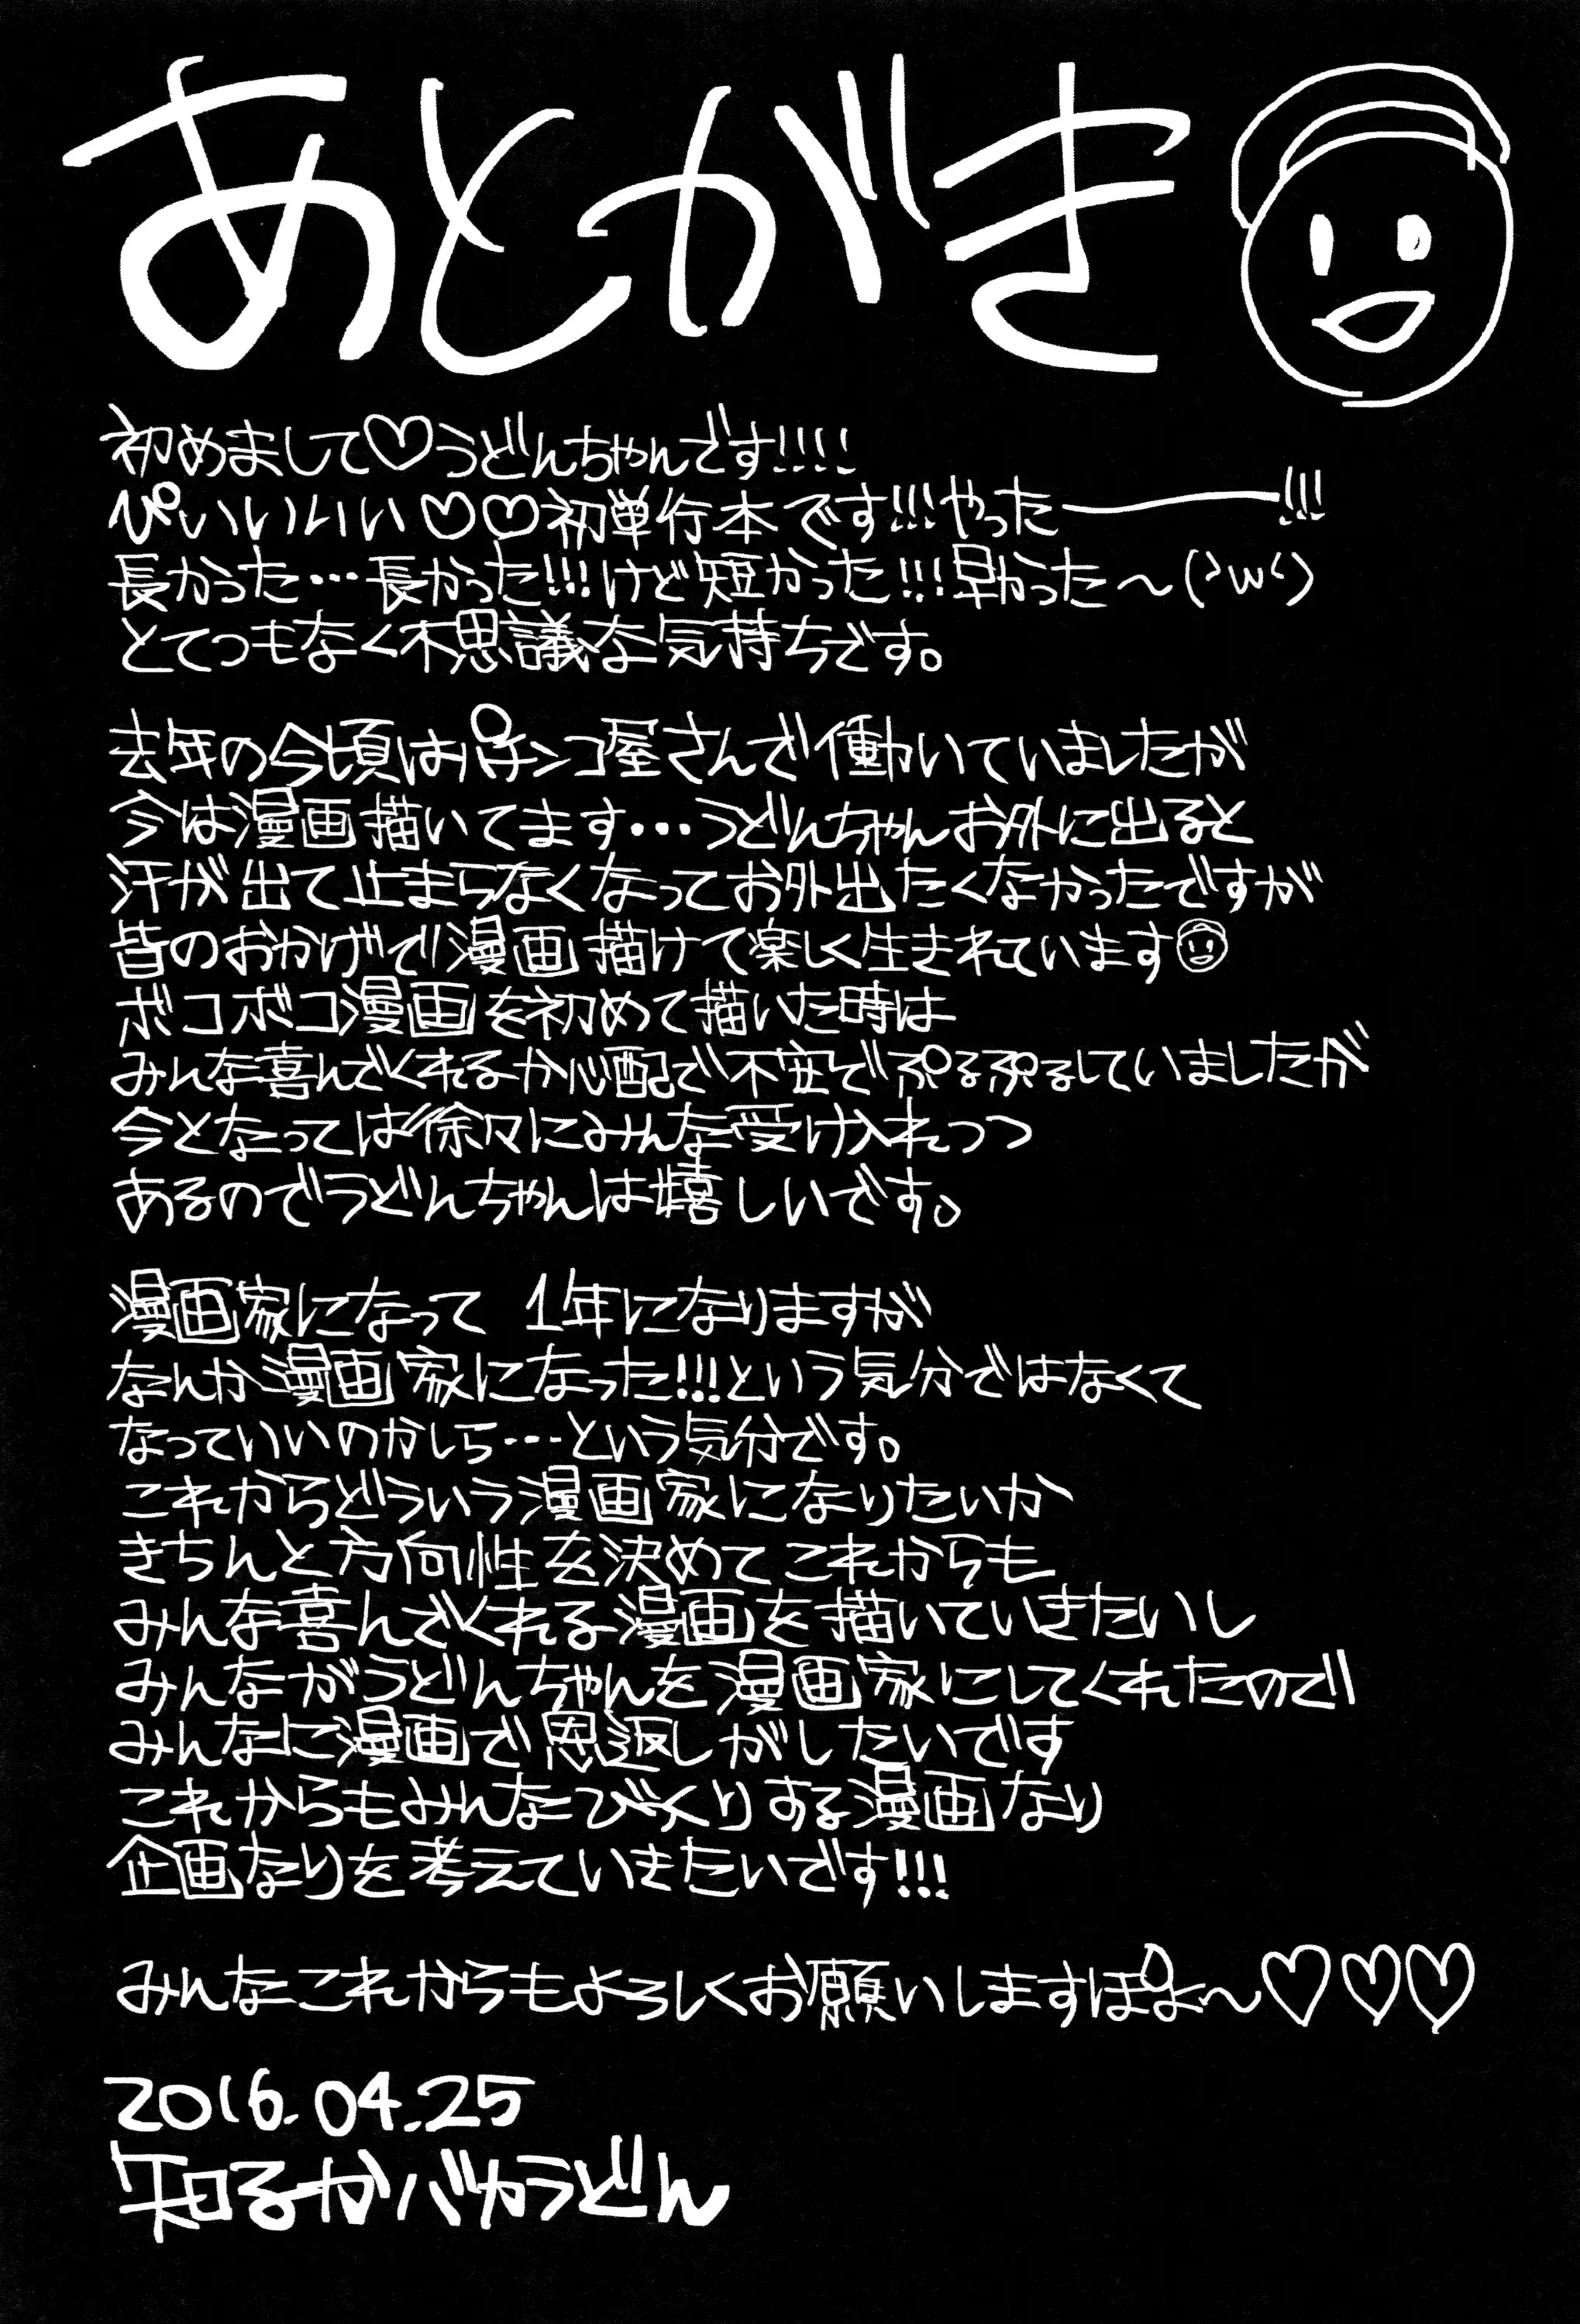 あとがき
初めまして♡うどんちゃんです!!!!
ぴぃいいいい♡♡初単行本です!!!やったー!!!
長かった…長かった!!!けど短かった!!!早かった～(>w<)
とてつもなく不思議な気持ちです。
去年の今頃はパチンコ屋さんで働いていましたが
今は漫画描いてます…うどんちゃんお外に出ると
汗が出て止まらなくなってお外出たくなかったですが
皆のおかげで漫画描けて楽しく生きれています
ボコボコ漫画を初めて描いた時は
みんな喜んでくれるか心配で不安でぷるぷるしていましたが
今となっては徐々にみんな受け入れつつ
あるのでうどんちゃんは嬉しいです。
漫画家になって 1年になりますが
なんか漫画家になった!!!という気分ではなくて
なっていいのかしら…という気分です。
これからどういう漫画家になりたいか
きちんと方向性を決めてこれからも
みんな喜んでくれる漫画を描いていきたいし
みんながうどんちゃんを漫画家にしてくれたので
みんなに漫画で恩返しがしたいです
これからもみんなびっくりする漫画なり
企画なりを考えていきたいです!!!
みんなこれからもよろしくお願いしますぽよ～♡♡♡
2016.04.25
知るかバカうどん